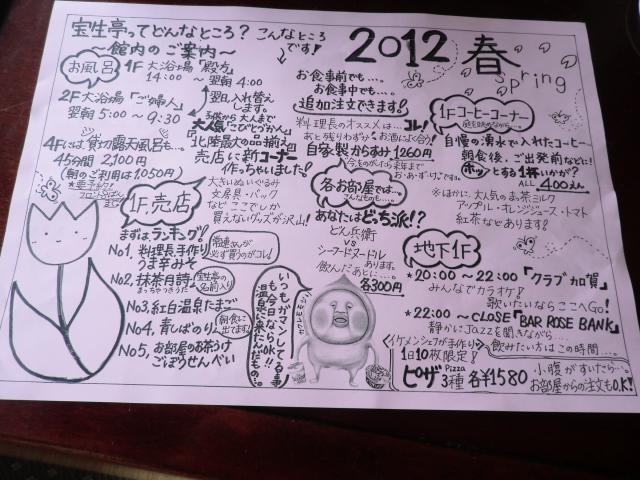 宝生亭ってどんなところ？こんなところです！
〜館内のご案内〜
2012 春
spring
お風呂
1F 大浴場「殿方」
14:00 〜 翌朝 4:00
2F 大浴場「ご婦人」
翌朝 5:00 〜 9:30
翌日入れ替えします。
4Fには、貸切露天風呂も…。
45分間 2,100円
(朝のご利用は1,050円)
子供から大人まで
大人気「こびとづかん」
北陸最大の品揃え!!
売店に新コーナー
作っちゃいました!!
大きいぬいぐるみ
文房具・バッグ
など ここでしか
買えないグッズが沢山!
1F 売店
まずはランキング!!
常連さんが
必ず買うのがコレ!
No1, 料理長手作り
うま辛みそ
No2, 抹茶自詩
宝生亭の
名前入り
No3, 紅白温泉たまご
No4, 青しばのり
朝食に
出てます!
No5, お部屋のお茶うけ
ごぼうせんべい
お食事前でも…。
お食事中でも…。
追加注文できます!
料理長のオススメは… コレ!
自家製からすみ 1260円
各お部屋では…。
こんなものも…。
あなたはどっち派!?
どん兵衛
vs
シーフードヌードル
あります。
飲んだあとに…。
各300円
いつもガマンしてる事
も今日ならOK!!
温泉に来たんだもの。
カクレモモジリ
1F コーヒーコーナー
庭を眺めながら…。
自慢の湧水で入れたコーヒー
朝食後、ご出発前などに!
ホッとする1杯いかが?
ALL 400えん
※ほかに、大人気のまっ茶ミルク
アップル・オレンジジュース・トマト
紅茶などあります!
地下1F
★20:00 〜 22:00 「クラブ加賀」
みんなでカラオケ!
歌いたいならここへGo!
★22:00 〜 CLOSE「BAR ROSE BANK」
静かにJazzを聞きながら…
飲みたい方はこの時間…。
イケメンシェフが手作り
1日10枚限定!
ピザ Pizza 3種 各¥1580
小腹がすいたら…。
お部屋からの注文もO.K!